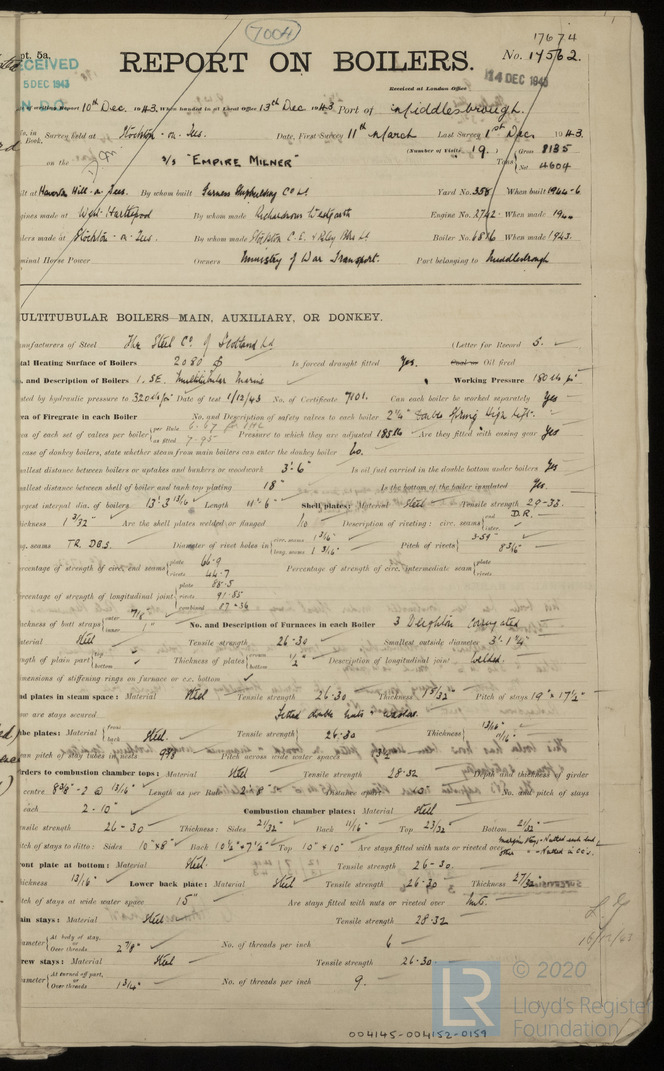 7004
17674
pt. 5a.
RECEIVED
5 DEC 1943
N.D.O.
REPORT ON BOILERS.
No. 14562.
Received at London Office
14 DEC 1943
writing Report 10th Dec. 1943. When handed in at Local Office 13th Dec 1943. Port of Middlesbrough.
Survey held at Stockton-on-Tees. Date, First Survey 11th March Last Survey 1st Dec 1943.
Book.
(Number of Visits 19.)
on the s/s "EMPIRE MILNER"
Tons { Gross 8135
Net 4604
ilt at Haverton Hill-on-Tees. By whom built Furness Shipbuilding Co Ld Yard No. 358 When built 1944-6
gines made at West Hartlepool By whom made Richardsons Westgarth Engine No. 2742 When made 194
ilers made at Stockton-on-Tees. By whom made Stockton C.E. & Riley Blrs Ld Boiler No. 6816 When made 1943.
minal Horse Power Owners Ministry of War Transport. Port belonging to Middlesbrough
MULTITUBULAR BOILERS MAIN, AUXILIARY, OR DONKEY.
anufacturers of Steel The Steel Co. of Scotland Ld (Letter for Record S.
tal Heating Surface of Boilers 2080 Is forced draught fitted Yes. Coal or Oil fired
. and Description of Boilers 1, S.E. Multitubular Marine Working Pressure 180
sted by hydraulic pressure to 320 Date of test 1/12/43 No. of Certificate 7101. Can each boiler be worked separately Yes
ea of Firegrate in each Boiler No. and Description of safety valves to each boiler 2 1/4" Double Spring High Lift.
ea of each set of valves per boiler { per Rule 6.67
as fitted 7.95 Pressure to which they are adjusted 185 lb Are they fitted with easing gear Yes
case of donkey boilers, state whether steam from main boilers can enter the donkey boiler No.
allest distance between boilers or uptakes and bunkers or woodwork 3'.6" Is oil fuel carried in the double bottom under boilers Yes
allest distance between shell of boiler and tank top plating 18" Is the bottom of the boiler insulated Yes.
argest internal dia. of boilers 13'.3 13/16" Length 11'.6" Shell plates: Material Steel Tensile strength 29-33.
hickness 1 3/32" Are the shell plates welded or flanged No Description of riveting: circ. seams { end D.R.
inter.
ng. seams T.R. D.B.S. Diameter of rivet holes in { circ. seams 1 3/16"
long. seams 1 3/16" Pitch of rivets { 3.59
8 3/16"
ercentage of strength of circ. end seams { plate 66.9
rivets 44.7 Percentage of strength of circ. intermediate seam { plate
rivets
ercentage of strength of longitudinal joint { plate 85.5
rivets 91.85
combined 87.36
hickness of butt straps { outer 7/8"
inner 1" No. and Description of Furnaces in each Boiler 3 Deighton Corrugated
aterial Steel Tensile strength 26-30 Smallest outside diameter 3'.1 1/4"
ength of plain part { top
bottom Thickness of plates { 1/2"
bottom Description of longitudinal joint Welded.
imensions of stiffening rings on furnace or c.c. bottom
nd plates in steam space: Material Steel Tensile strength 26-30 Thickness 1 5/32" Pitch of stays 19" x 17 1/2"
ow are stays secured Fitted double nuts & washers.
ube plates: Material { front
back Steel. Tensile strength { 26-30 Thickness { 13/16"
11/16"
ean pitch of stay tubes in nests Pitch across wide water spaces
irders to combustion chamber tops: Material Steel Tensile strength 28-32 Depth and thickness of girder
centre 8 5/8" - 2 @ 13/16" Length as per Rule 2'.8" Distance apart No. and pitch of stays
each 2 - 10" Combustion chamber plates: Material Steel
ensile strength 26-30 Thickness: Sides 21/32" Back 11/16" Top 23/32" Bottom 21/32"
itch of stays to ditto: Sides 10" x 8" Back 10 1/2" x 7 1/2" Top 10" x 10" Are stays fitted with nuts or riveted over
ront plate at bottom: Material Steel. Tensile strength 26-30.
hickness 13/16" Lower back plate: Material Steel Tensile strength 26-30 Thickness 27/32"
itch of stays at wide water space 15" Are stays fitted with nuts or riveted over Nuts.
ain stays: Material Steel Tensile strength 28-32
iameter { At body of stay,
or
Over threads 2 7/8" No. of threads per inch 6
crew stays: Material Steel Tensile strength 26-30.
iameter { At turned off part,
or
Over threads 1 3/4" No. of threads per inch 9.
LR
© 2020
Lloyd's Register
Foundation
004145-004152-0159